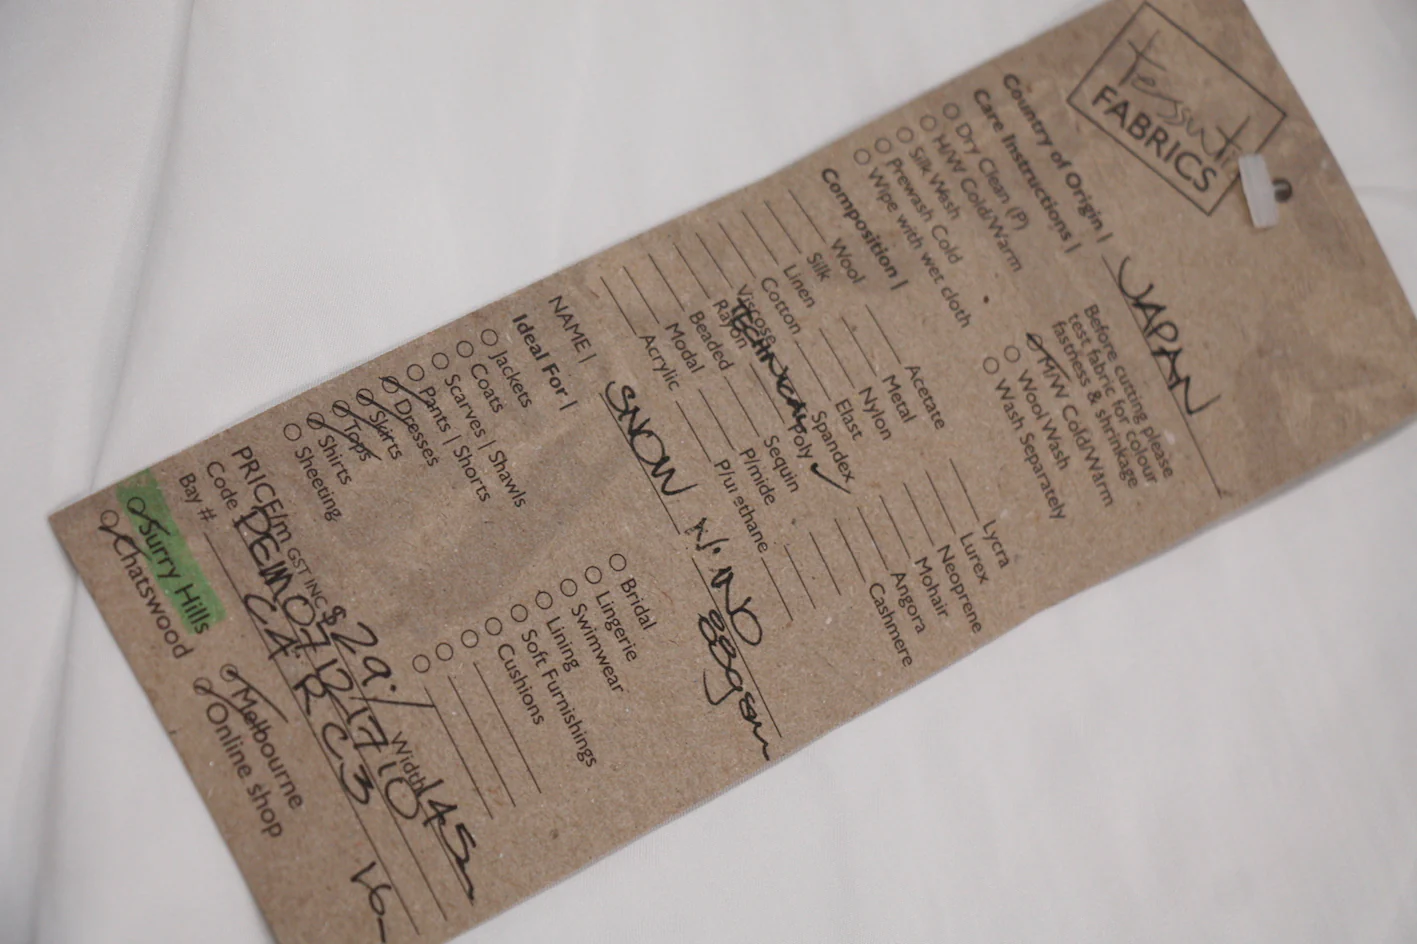 tessuti
FABRICS
Country of Origin | JAPAN
Care Instructions |
Before cutting please
test fabric for colour
fastness & shrinkage
Dry Clean (P)
H/W Cold/Warm
Silk Wash
Prewash Cold
Wipe with wet cloth
M/W Cold/Warm
Wool Wash
Wash Separately
Composition |
Wool
Silk
Linen
Cotton
Viscose
Rayon
Beaded
Modal
Acrylic
TECHNICAL
Acetate
Metal
Nylon
Elast
Spandex
Poly ✓
Sequin
P/mide
P/urethane
Lycra
Lurex
Neoprene
Mohair
Angora
Cashmere
NAME | SNOW
88gsm
Ideal For |
Jackets
Coats
Scarves | Shawls
Pants | Shorts
Dresses
Skirts
Tops
Shirts
Sheeting
Bridal
Lingerie
Swimwear
Lining
Soft Furnishings
Cushions
PRICE/m GST INC $ 29./ Width 145
Code
Bay #
Surry Hills
Chatswood
Melbourne
Online shop